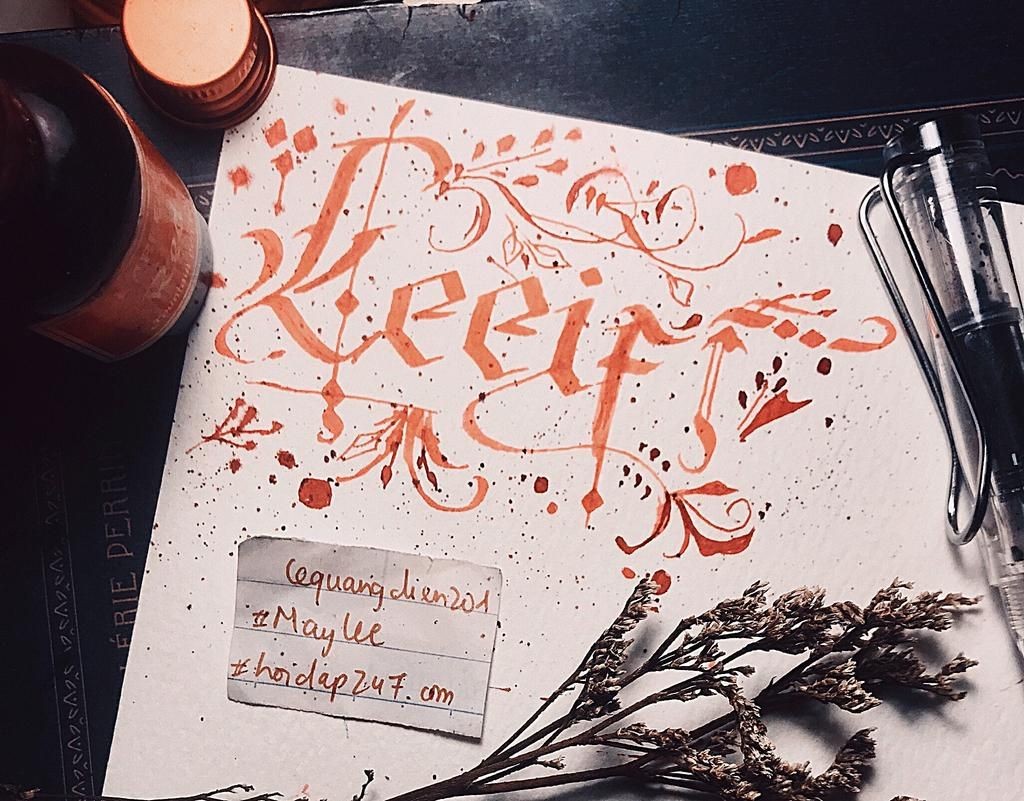 Keeif
lequangdien201
#MayLee
#hoidap247.com
ÉRIE PERRIN